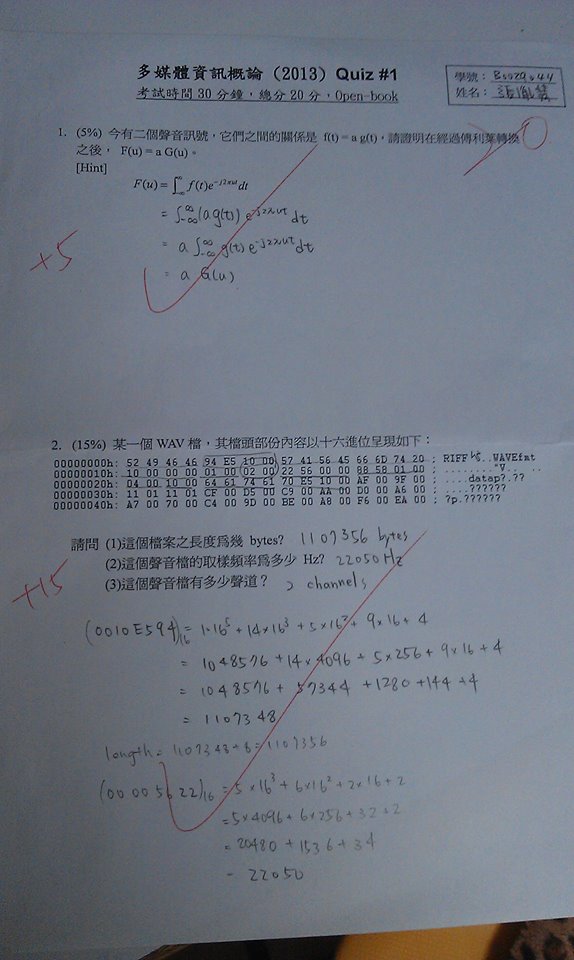 多媒體資訊概論 (2013) Quiz #1
考試時間 30 分鐘，總分 20 分，Open-book
學號：
姓名：張
20
1. (5%) 今有二個聲音訊號，它們之間的關係是 f(t) = a g(t)，請證明在經過傅利葉轉換
之後， F(u) = a G(u)。
[Hint]
F(u) = ∫_{-∞}^{∞} f(t)e^{-j2πut}dt
= ∫_{-∞}^{∞} (a g(t)) e^{-j2πut} dt
= a ∫_{-∞}^{∞} g(t) e^{-j2πut} dt
= a G(u)
+5
2. (15%) 某一個 WAV 檔，其檔頭部份內容以十六進位呈現如下：
00000000h: 52 49 46 46 94 E5 10 00 57 41 56 45 66 6D 74 20 ; RIFF WAVEfmt
00000010h: 10 00 00 00 01 00 02 00 22 56 00 00 88 58 01 00 ; ........"V..
00000020h: 04 00 10 00 64 61 74 61 70 E5 10 00 AF 00 9F 00 ; ....datap?.??
00000030h: 11 01 11 01 CF 00 D5 00 C9 00 AA 00 D0 00 A6 00 ; ....??????
00000040h: A7 00 70 00 C4 00 9D 00 BE 00 A8 00 F6 00 EA 00 ; ?p.??????
請問 (1)這個檔案之長度為幾 bytes? 1107356 bytes
(2)這個聲音檔的取樣頻率為多少 Hz? 22050 Hz
(3)這個聲音檔有多少聲道？ 2 channels
+15
(0010E594)₁₆ = 1·16⁵ + 14×16³ + 5×16² + 9×16 + 4
= 1048576 + 14×4096 + 5×256 + 9×16 + 4
= 1048576 + 57344 + 1280 + 144 + 4
= 1107348
length = 1107348 + 8 = 1107356
(00005622)₁₆ = 5×16³ + 6×16² + 2×16 + 2
= 5×4096 + 6×256 + 32 + 2
= 20480 + 1536 + 34
= 22050